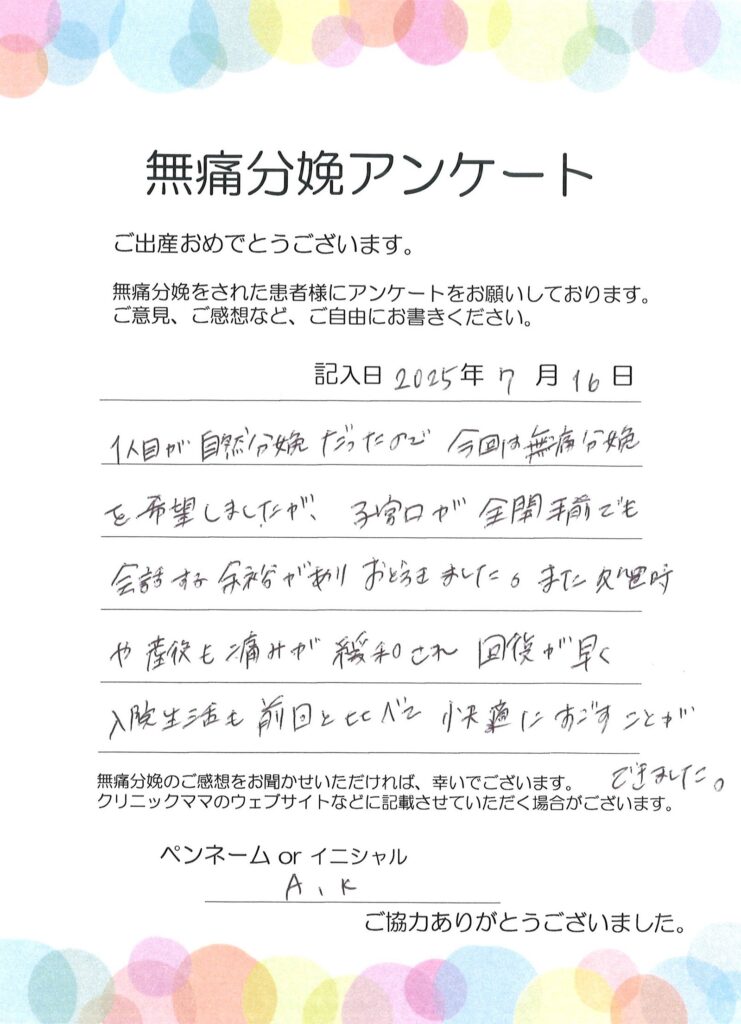 無痛分娩アンケート
ご出産おめでとうございます。
無痛分娩をされた患者様にアンケートをお願いしております。
ご意見、ご感想など、ご自由にお書きください。
記入日 2025年 7 月 16 日
1人目が自然分娩だったので 今回は無痛分娩
を希望しましたが、子宮口が全開手前でも
会話する余裕がありおどろきました。また処置時
や産後も痛みが緩和され 回復が早く
入院生活も前回と比べて 快適にすごすことが
できました。
無痛分娩のご感想をお聞かせいただければ、幸いでございます。
クリニックママのウェブサイトなどに記載させていただく場合がございます。
ペンネーム or イニシャル
A、K
ご協力ありがとうございました。